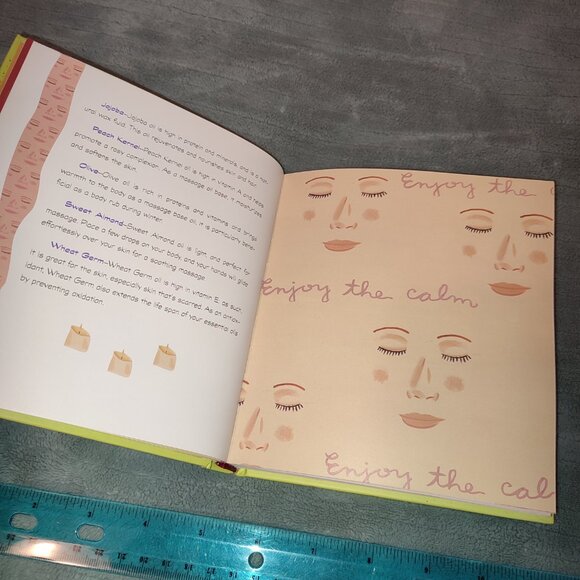 Jojoba–Jojoba oil is high in protein and minerals, and is a nat-
ural wax fluid. This oil rejuvenates and nourishes skin and hair.
Peach Kernel–Peach Kernel oil is high in vitamin A and helps
promote a rosy complexion. As a massage oil base, it moisturizes
and softens the skin.
Olive–Olive oil is rich in proteins and vitamins and brings
warmth to the body as a massage base oil. It is particularly bene-
ficial as a body rub during winter.
Sweet Almond–Sweet Almond oil is light, and perfect for
massage. Place a few drops on your body, and your hands will glide
effortlessly over your skin for a soothing massage.
Wheat Germ–Wheat Germ oil is high in vitamin E; as such,
it is great for the skin, especially skin that's scarred. As an antiox-
idant, Wheat Germ also extends the life span of your essential oils
by preventing oxidation.
Enjoy the c
Enjoy the calm
Enjoy the cal
2 3 4 5 6 7 8 9